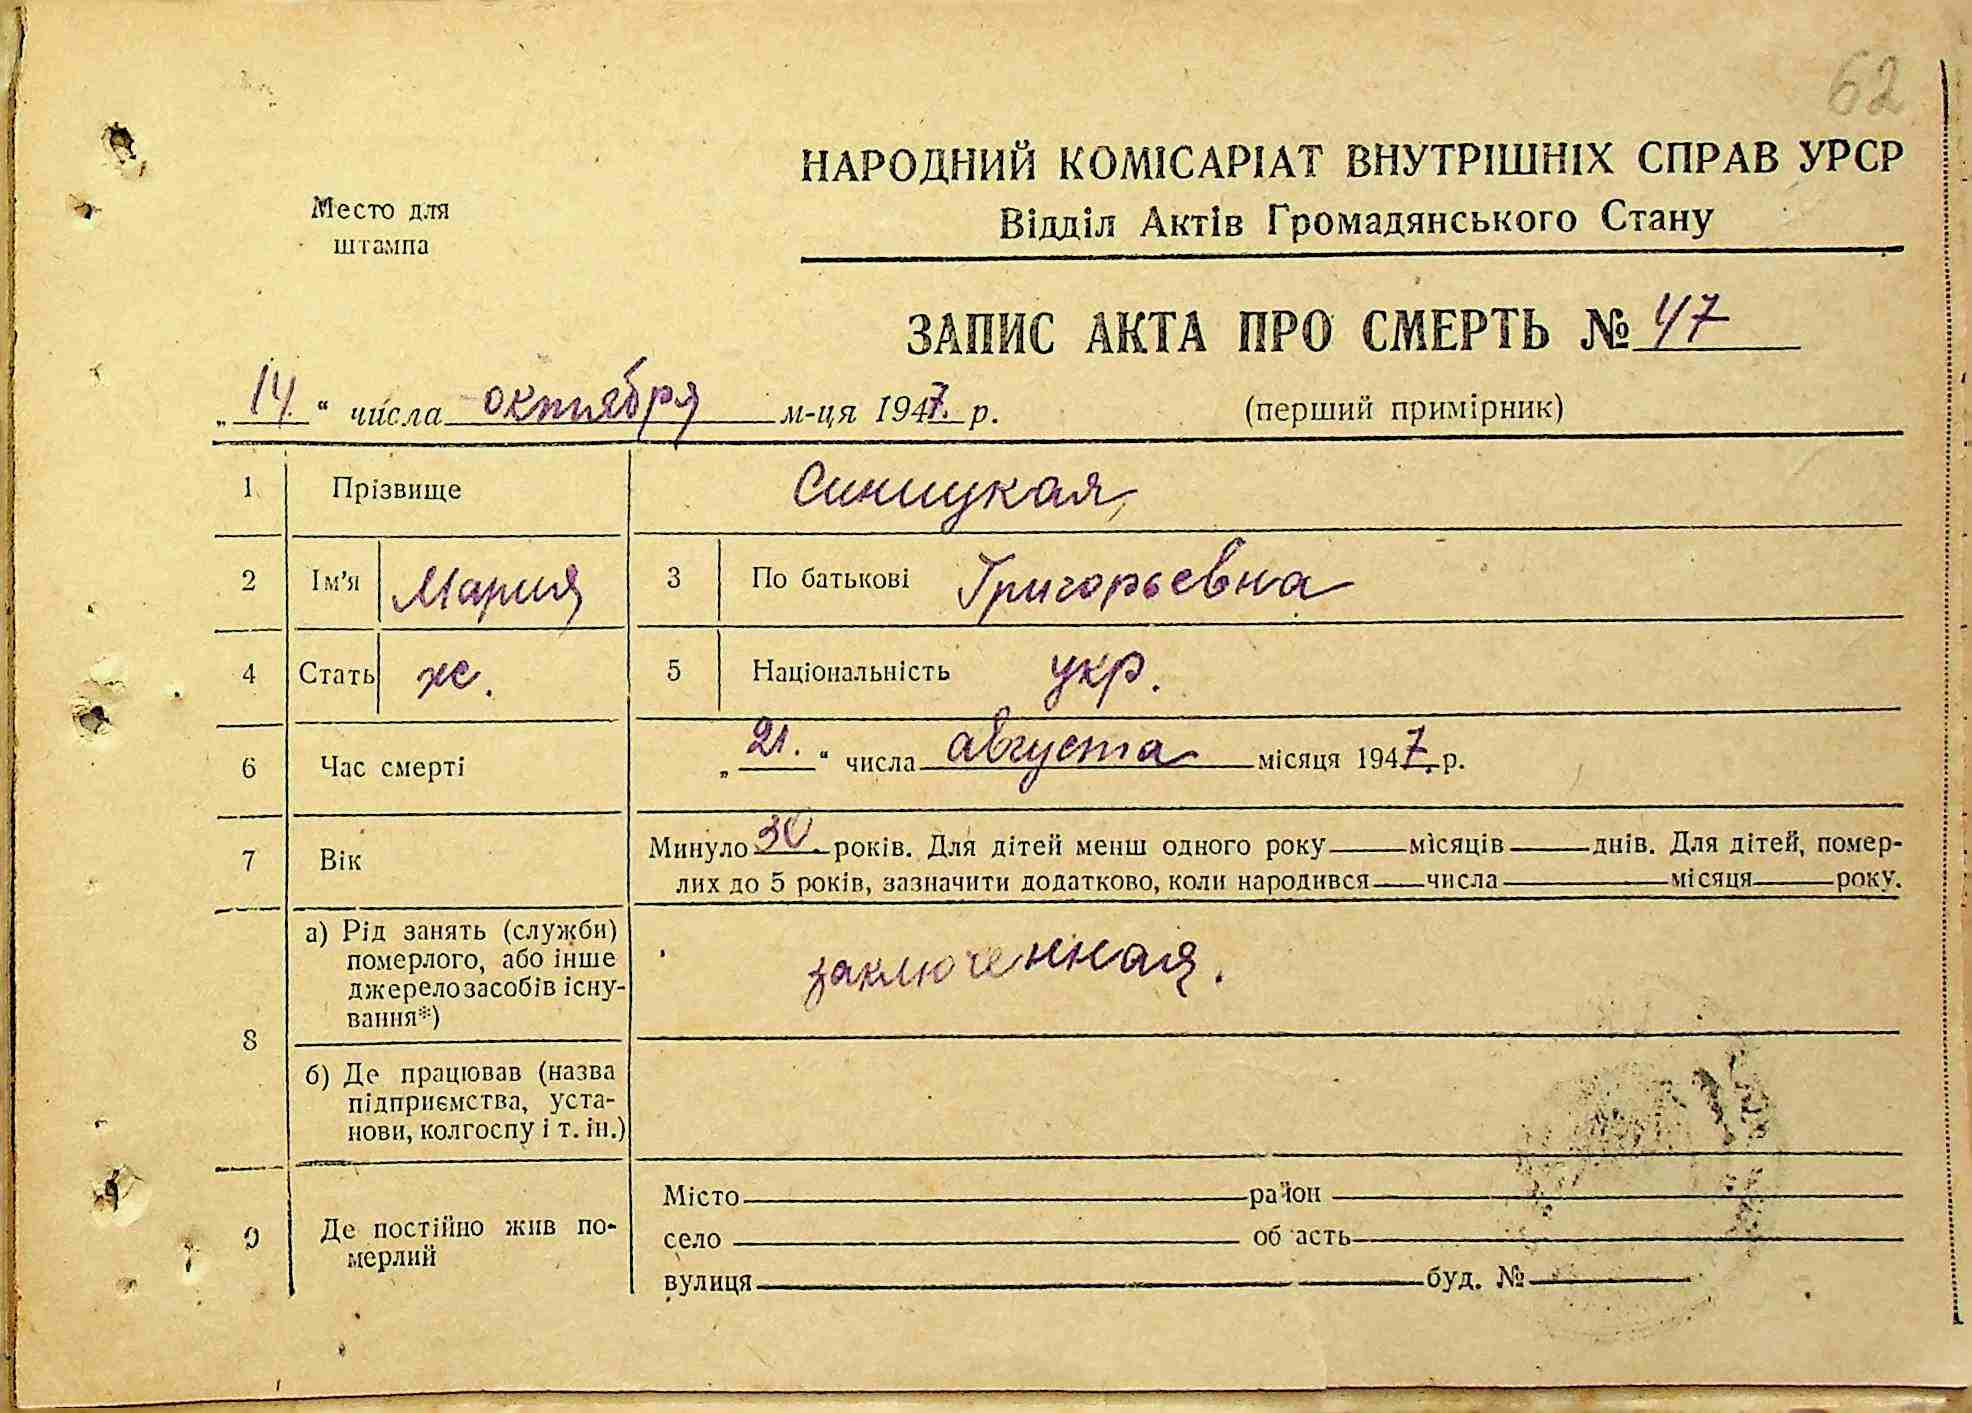 62
НАРОДНИЙ КОМІСАРІАТ ВНУТРІШНІХ СПРАВ УРСР
Место для
штампа
Відділ Актів Громадянського Стану
ЗАПИС АКТА ПРО СМЕРТЬ № 47
„14.“ числа октября м-ця 1947. р. (перший примірник)
1 Прізвище Синицкая
2 Ім'я Мария 3 По батькові Григорьевна
4 Стать ж. 5 Національність укр.
6 Час смерті „21.“ числа августа місяця 1947. р.
7 Вік Минуло 30. років. Для дітей менш одного року місяців днів. Для дітей, помер-
лих до 5 років, зазначити додатково, коли народився числа місяця року.
8 а) Рід занять (служби)
померлого, або інше
джерело засобів існу-
вання*)
заключенная.
б) Де працював (назва
підприємства, уста-
нови, колгоспу і т. ін.)
9 Де постійно жив по-
мерлий
Місто район
село об асть
вулиця буд. №